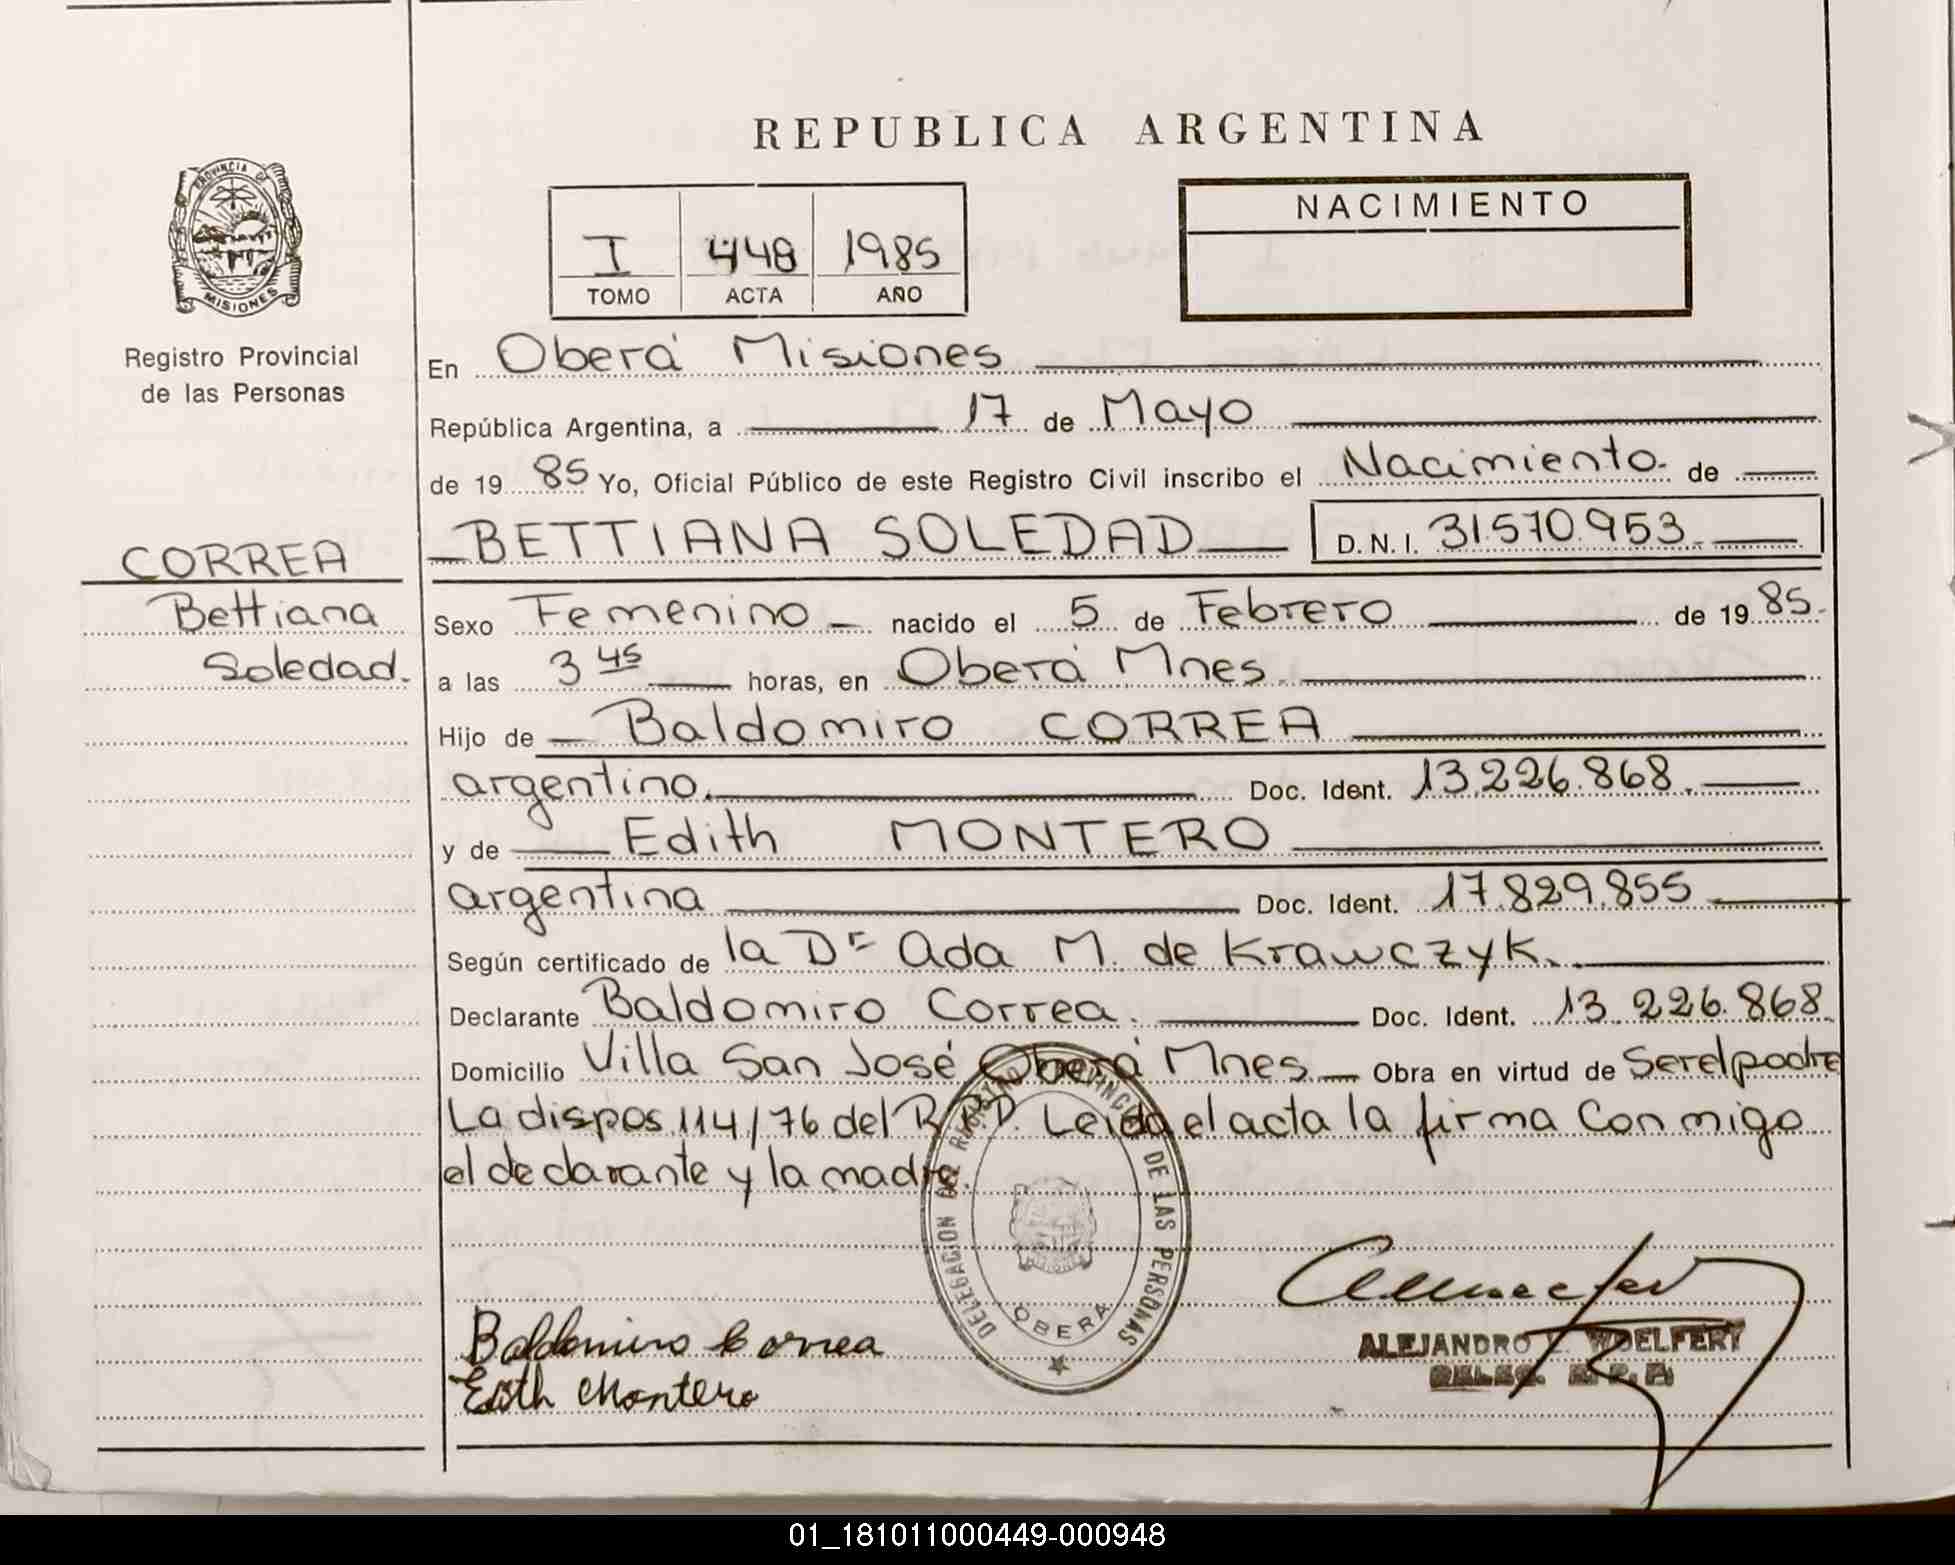 REPUBLICA ARGENTINA
PROVINCIA DE
MISIONES
Registro Provincial
de las Personas
I 448 1985
TOMO ACTA AÑO
NACIMIENTO
En Oberá Misiones
República Argentina, a 17 de Mayo
de 19 85 Yo, Oficial Público de este Registro Civil inscribo el Nacimiento. de
CORREA
Bettiana
Soledad.
BETTIANA SOLEDAD D.N.I. 31.570.953
Sexo Femenino nacido el 5 de Febrero de 19 85.
a las 3 45 horas, en Oberá Mnes.
Hijo de Baldomiro CORREA
argentino. Doc. Ident. 13.226.868.
y de Edith MONTERO
argentina Doc. Ident. 17.829.855
Según certificado de la Dr Ada M. de Krawczyk.
Declarante Baldomiro Correa. Doc. Ident. 13.226.868.
Domicilio Villa San José Oberá Mnes. Obra en virtud de Ser el padre
La dispos. 114/76 del R.P.D. Leida el acta la firma Conmigo
el declarante y la madre.
DELEGACION DEL REGISTRO PROVINCIAL DE LAS PERSONAS
OBERA
Baldomiro Correa
Edith Montero
ALEJANDRO WOELFERT
DELEG. R.P.P.
01_181011000449-000948